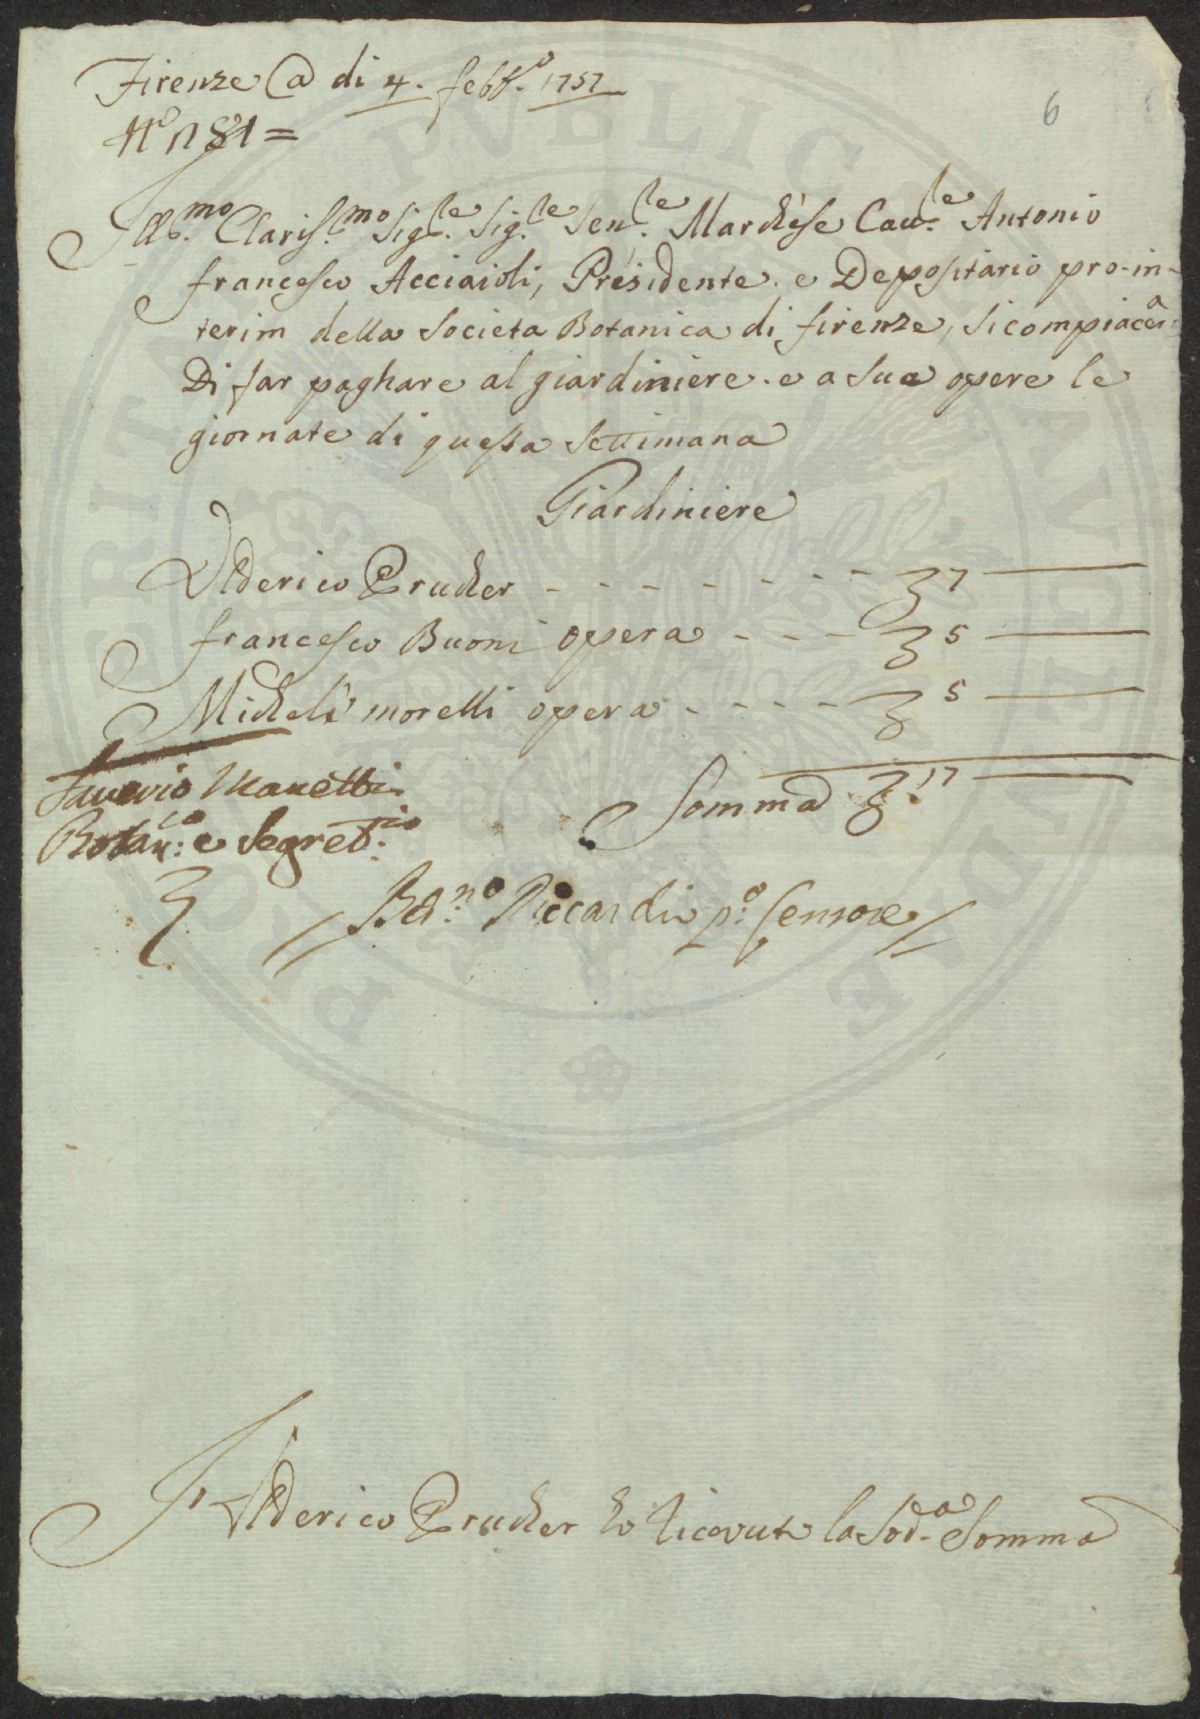 Firenze @ di 4. febb.º 1757
6
Nº 181=
Ill.mo Clariss.mo Sig.le Sig.le Sen.le Marchese Cau.le Antonio
francesco Acciaioli, Presidente. e Depositario pro-in-
terim della Societa Botanica di firenze, Si compiacera
Di far paghare al giardiniere. e a Sua opere le
giornate di questa Settimana
Giardiniere
Ulderico Prucher - - - - - - - - 7 ——
francesco Buoni opera - - - - 5 ——
Michele morelli opera - - - - 5 ——
Somma 17 ——
Saverio Manetti
Botan.co e Segret.rio
Ber.no Riccardi p.º Censore
Io Ulderico Prucher ho ricevuto la Sod.a Somma